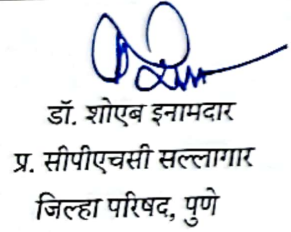 डॉ. शोएब इनामदार
प्र. सीपीएचसी सल्लागार
जिल्हा परिषद, पुणे